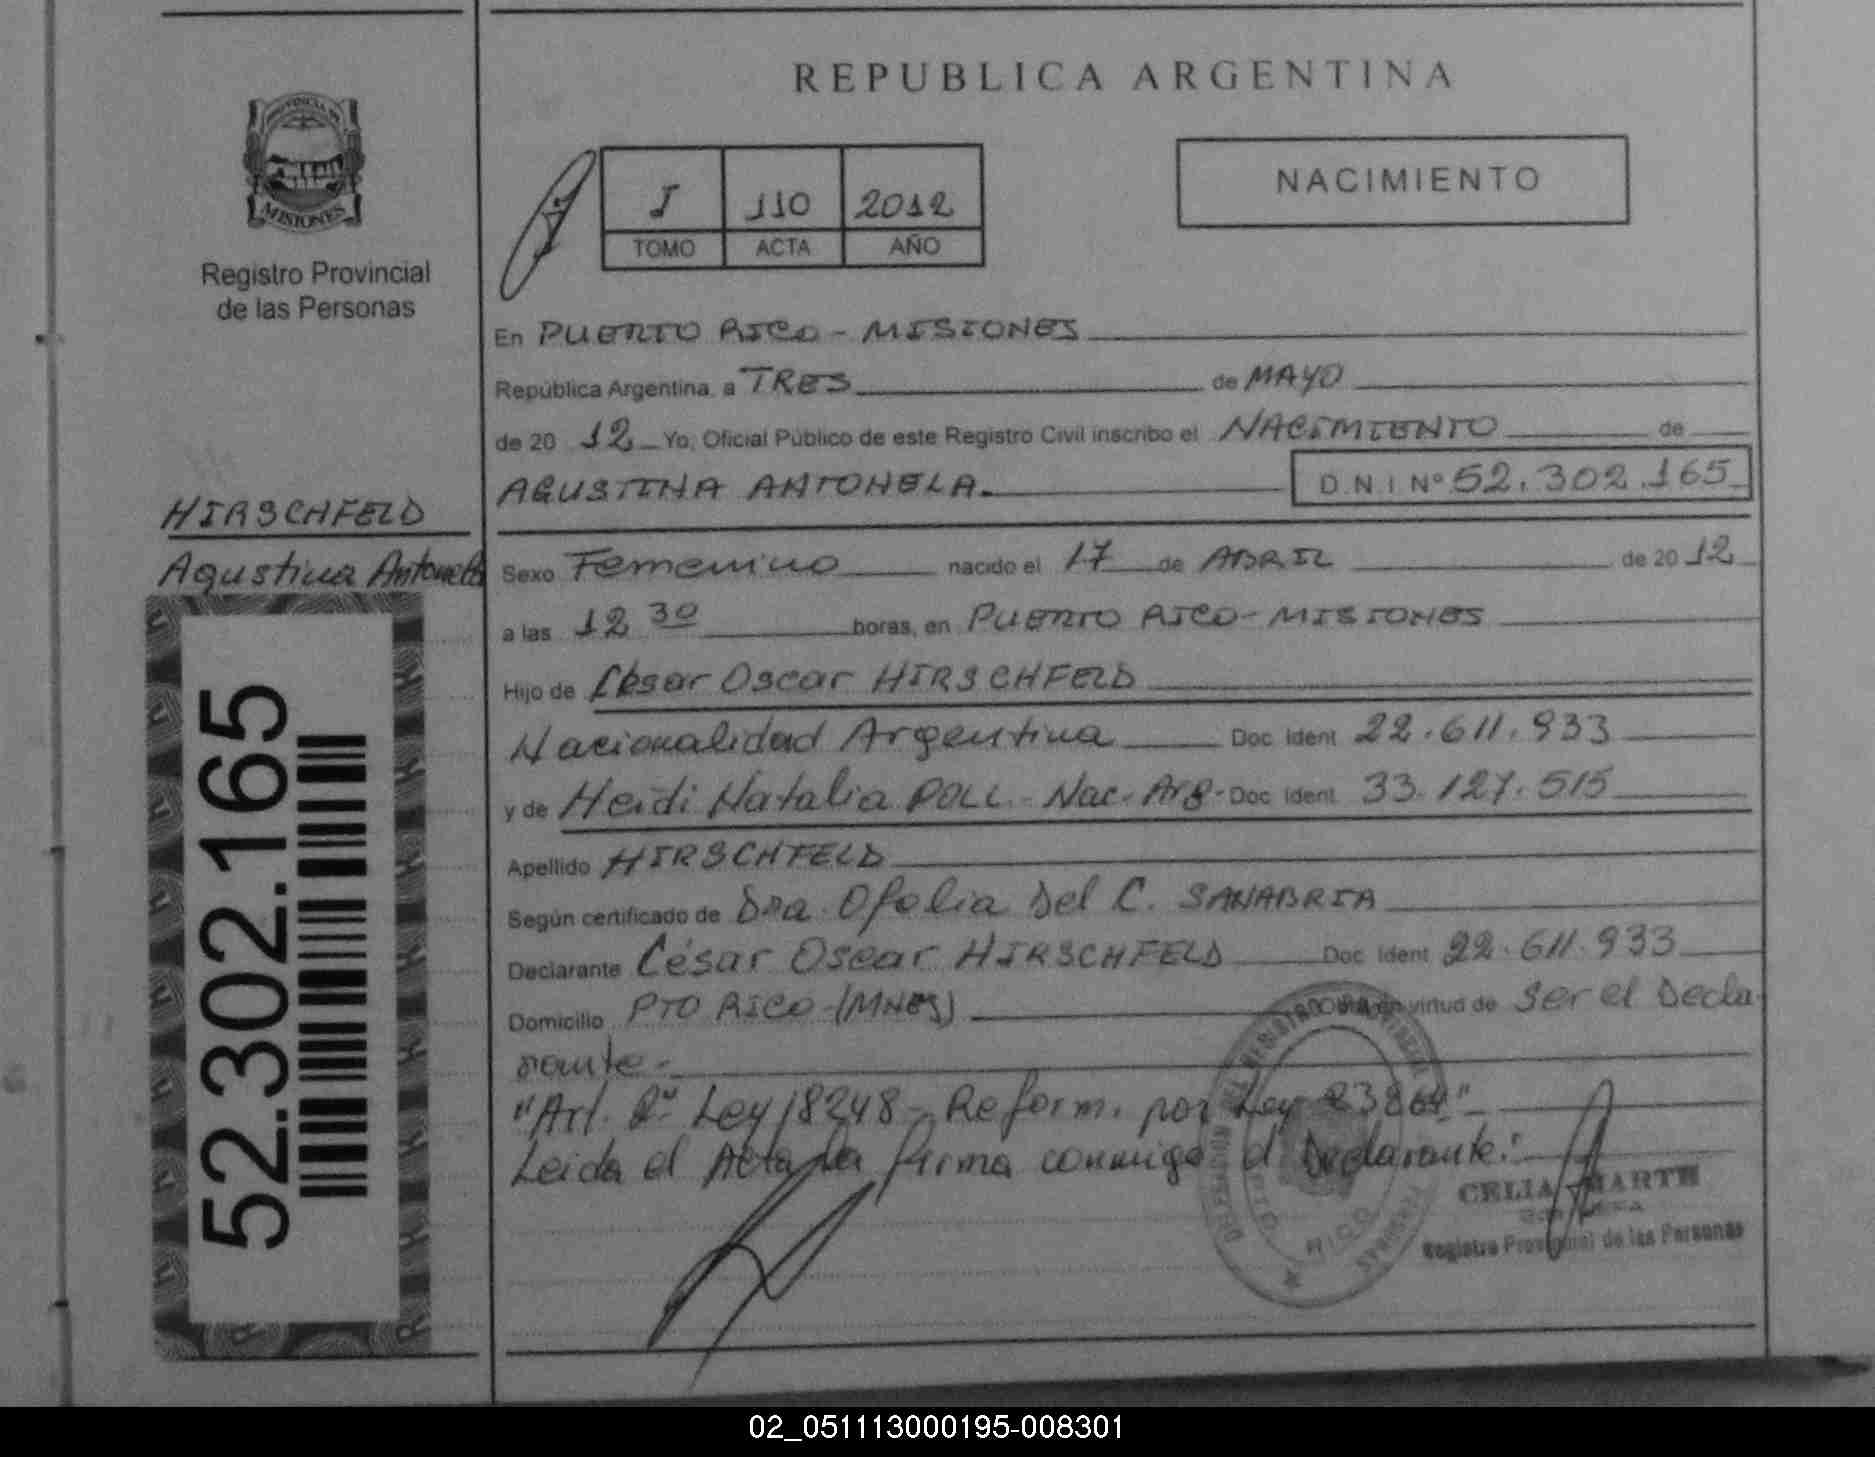 REPUBLICA ARGENTINA
PROVINCIA DE
MISIONES
Registro Provincial
de las Personas
I 110 2012
TOMO ACTA AÑO
NACIMIENTO
En PUERTO RICO - MISIONES
República Argentina, a TRES de MAYO
de 20 12 Yo, Oficial Público de este Registro Civil inscribo el NACIMIENTO de
AGUSTINA ANTONELA.
D.N.I Nº 52.302.165
HIRSCHFELD
Agustina Antonela
Sexo Femenino nacido el 17 de ABRIL de 20 12
a las 12 30 horas, en PUERTO RICO - MISIONES
Hijo de César Oscar HIRSCHFELD
Nacionalidad Argentina Doc Ident 22.611.933
y de Heidi Natalia POLL - Nac. Arg - Doc Ident 33.127.515
Apellido HIRSCHFELD
Según certificado de Dra. Ofelia Del C. SANABRIA
Declarante César Oscar HIRSCHFELD Doc Ident 22.611.933
Domicilio PTO RICO - (MNES) virtud de ser el Decla-
rante -
"Art. 2º Ley 18248 - Reform. por Ley 23864"
Leida el Acta la firma conmigo el Declarante.
CELIA MARTH
Registro Provincial de las Personas
PTO RICO
52.302.165
02_051113000195-008301